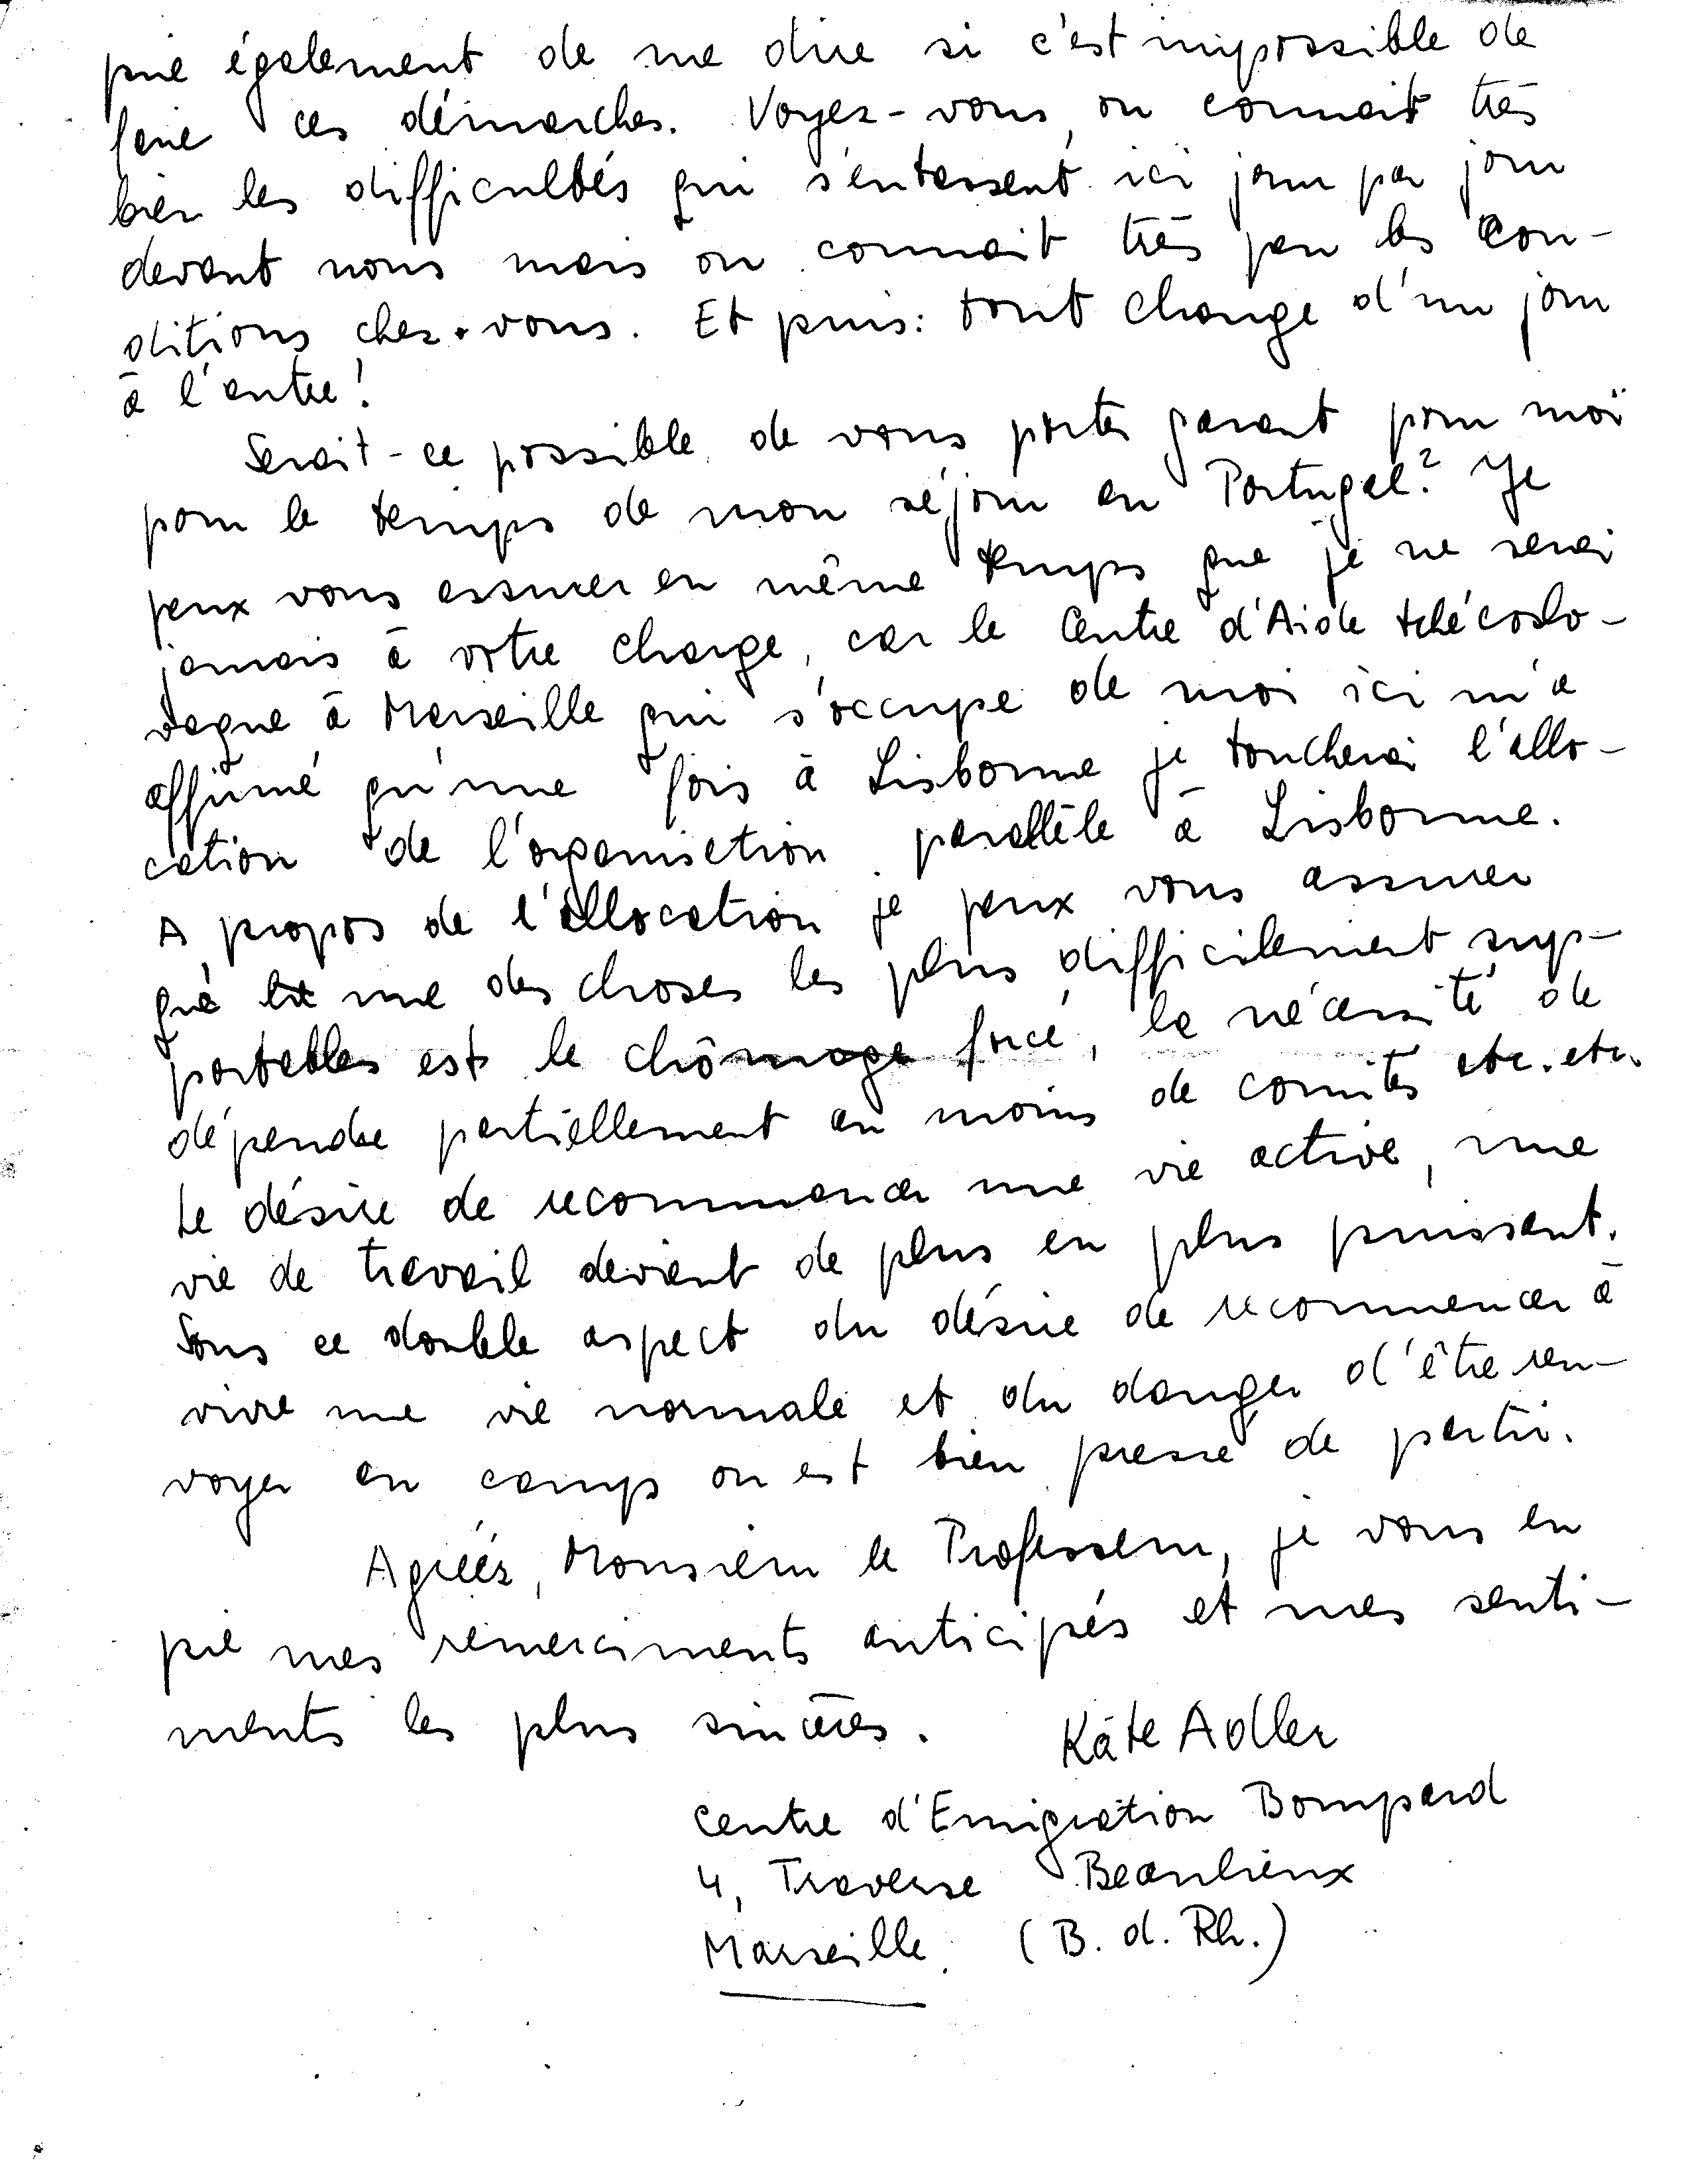 prie également de me dire si c'est impossible de
faire ces démarches. Voyez-vous, on connait très
bien les difficultés qui s'entassent ici jour par jour
devant nous mais on connait très peu les con-
ditions chez-vous. Et puis: tout change d'un jour
à l'autre!
Serait-ce possible de vous porter garant pour moi
pour le temps de mon séjour en Portugal? Je
peux vous assurer en même temps que je ne serai
jamais à votre charge, car le Centre d'Aide tchécoslo-
vaque à Marseille qui s'occupe de moi ici m'a
affirmé qu'une fois à Lisbonne je toucherai l'allo-
cation de l'organisation parallèle à Lisbonne.
A propos de l'allocation je peux vous assurer
que une des choses les plus difficilement sup-
portables est le chômage forcé, la nécessité de
dépendre partiellement au moins de comités etc. etc.
Le désire de recommencer une vie active, une
vie de travail devient de plus en plus puissant.
Sous ce double aspect du désire de recommencer à
vivre une vie normale et du danger d'être ren-
voyer en camp on est bien pressé de partir.
Agréez, Monsieur le Professeur, je vous en
prie mes remerciments anticipés et mes senti-
ments les plus sincères.
Käte Adler
Centre d'Emigration Bompard
4, Traverse Beaulieux
Marseille. (B. d. Rh.)